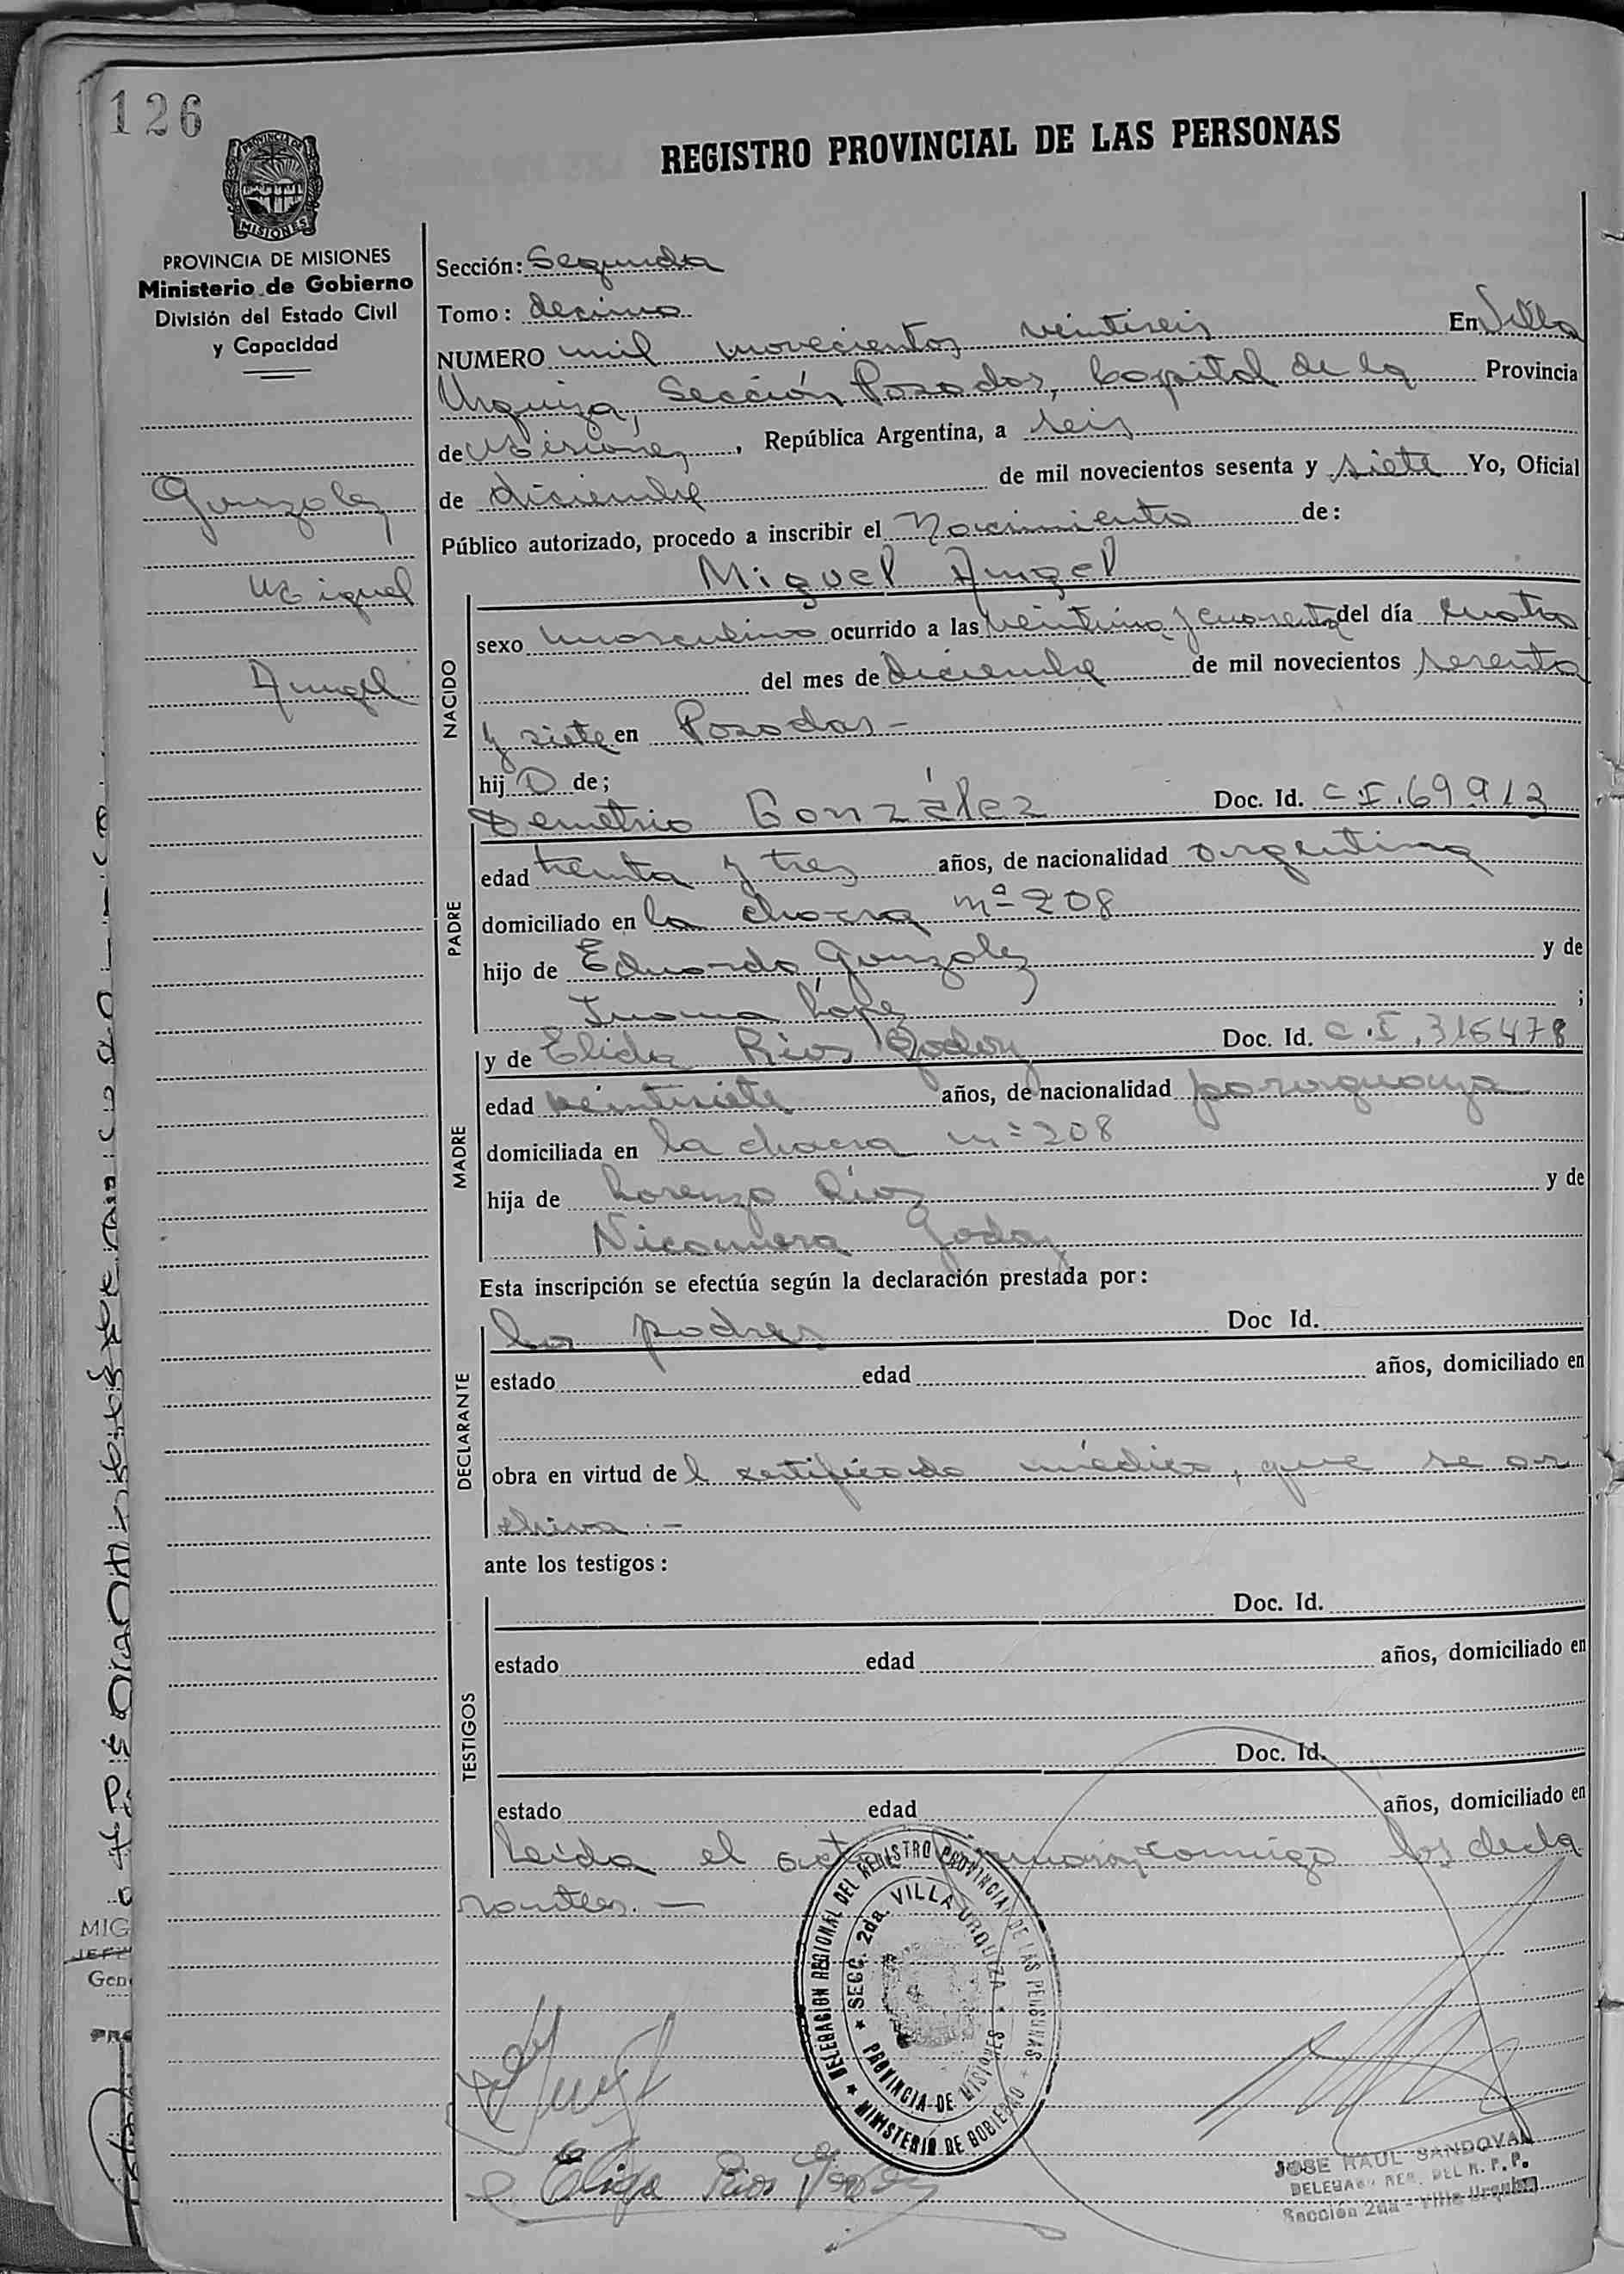 126
REGISTRO PROVINCIAL DE LAS PERSONAS
PROVINCIA DE MISIONES
Ministerio de Gobierno
División del Estado Civil
y Capacidad
Gonzalez
Miguel
Angel
Sección: Segunda
Tomo: decimo
NUMERO mil novecientos veintiseis En Villa
Urquiza, Sección Posadas, Capital de la Provincia
de Misiones, República Argentina, a seis
de diciembre de mil novecientos sesenta y siete Yo, Oficial
Público autorizado, procedo a inscribir el Nacimiento de:
Miguel Angel
NACIDO
sexo masculino ocurrido a las veintiuna y cuarenta del día cuatro
del mes de diciembre de mil novecientos sesenta
y siete en Posadas-
hijo de;
PADRE
Demetrio González Doc. Id. C.I. 69913
edad treinta y tres años, de nacionalidad argentina
domiciliado en la chacra nº 208
hijo de Eduardo Gonzalez y de
Juana López ;
MADRE
y de Elida Rios Godoy Doc. Id. C.I. 316478
edad veintisiete años, de nacionalidad paraguaya
domiciliada en la chacra nº 208
hija de Lorenzo Ríos y de
Nicomera Godoy
Esta inscripción se efectúa según la declaración prestada por:
DECLARANTE
los padres Doc Id.
estado edad años, domiciliado en
obra en virtud del certificado médico, que se ar
chiva.-
ante los testigos:
TESTIGOS
Doc. Id.
estado edad años, domiciliado en
Doc. Id.
estado edad años, domiciliado en
Leida el acta firman conmigo los decla
rantes.-
DELEGACION REGIONAL DEL REGISTRO PROVINCIAL DE LAS PERSONAS
★ MINISTERIO DE GOBIERNO ★
★ SECC. 2da. VILLA URQUIZA ★
PROVINCIA DE MISIONES
Elida Rios
JOSE RAUL SANDOVAL
DELEGADO REG. DEL R. P. P.
Sección 2da - Villa Urquiza
MIG
JEFE
Gen
PRO